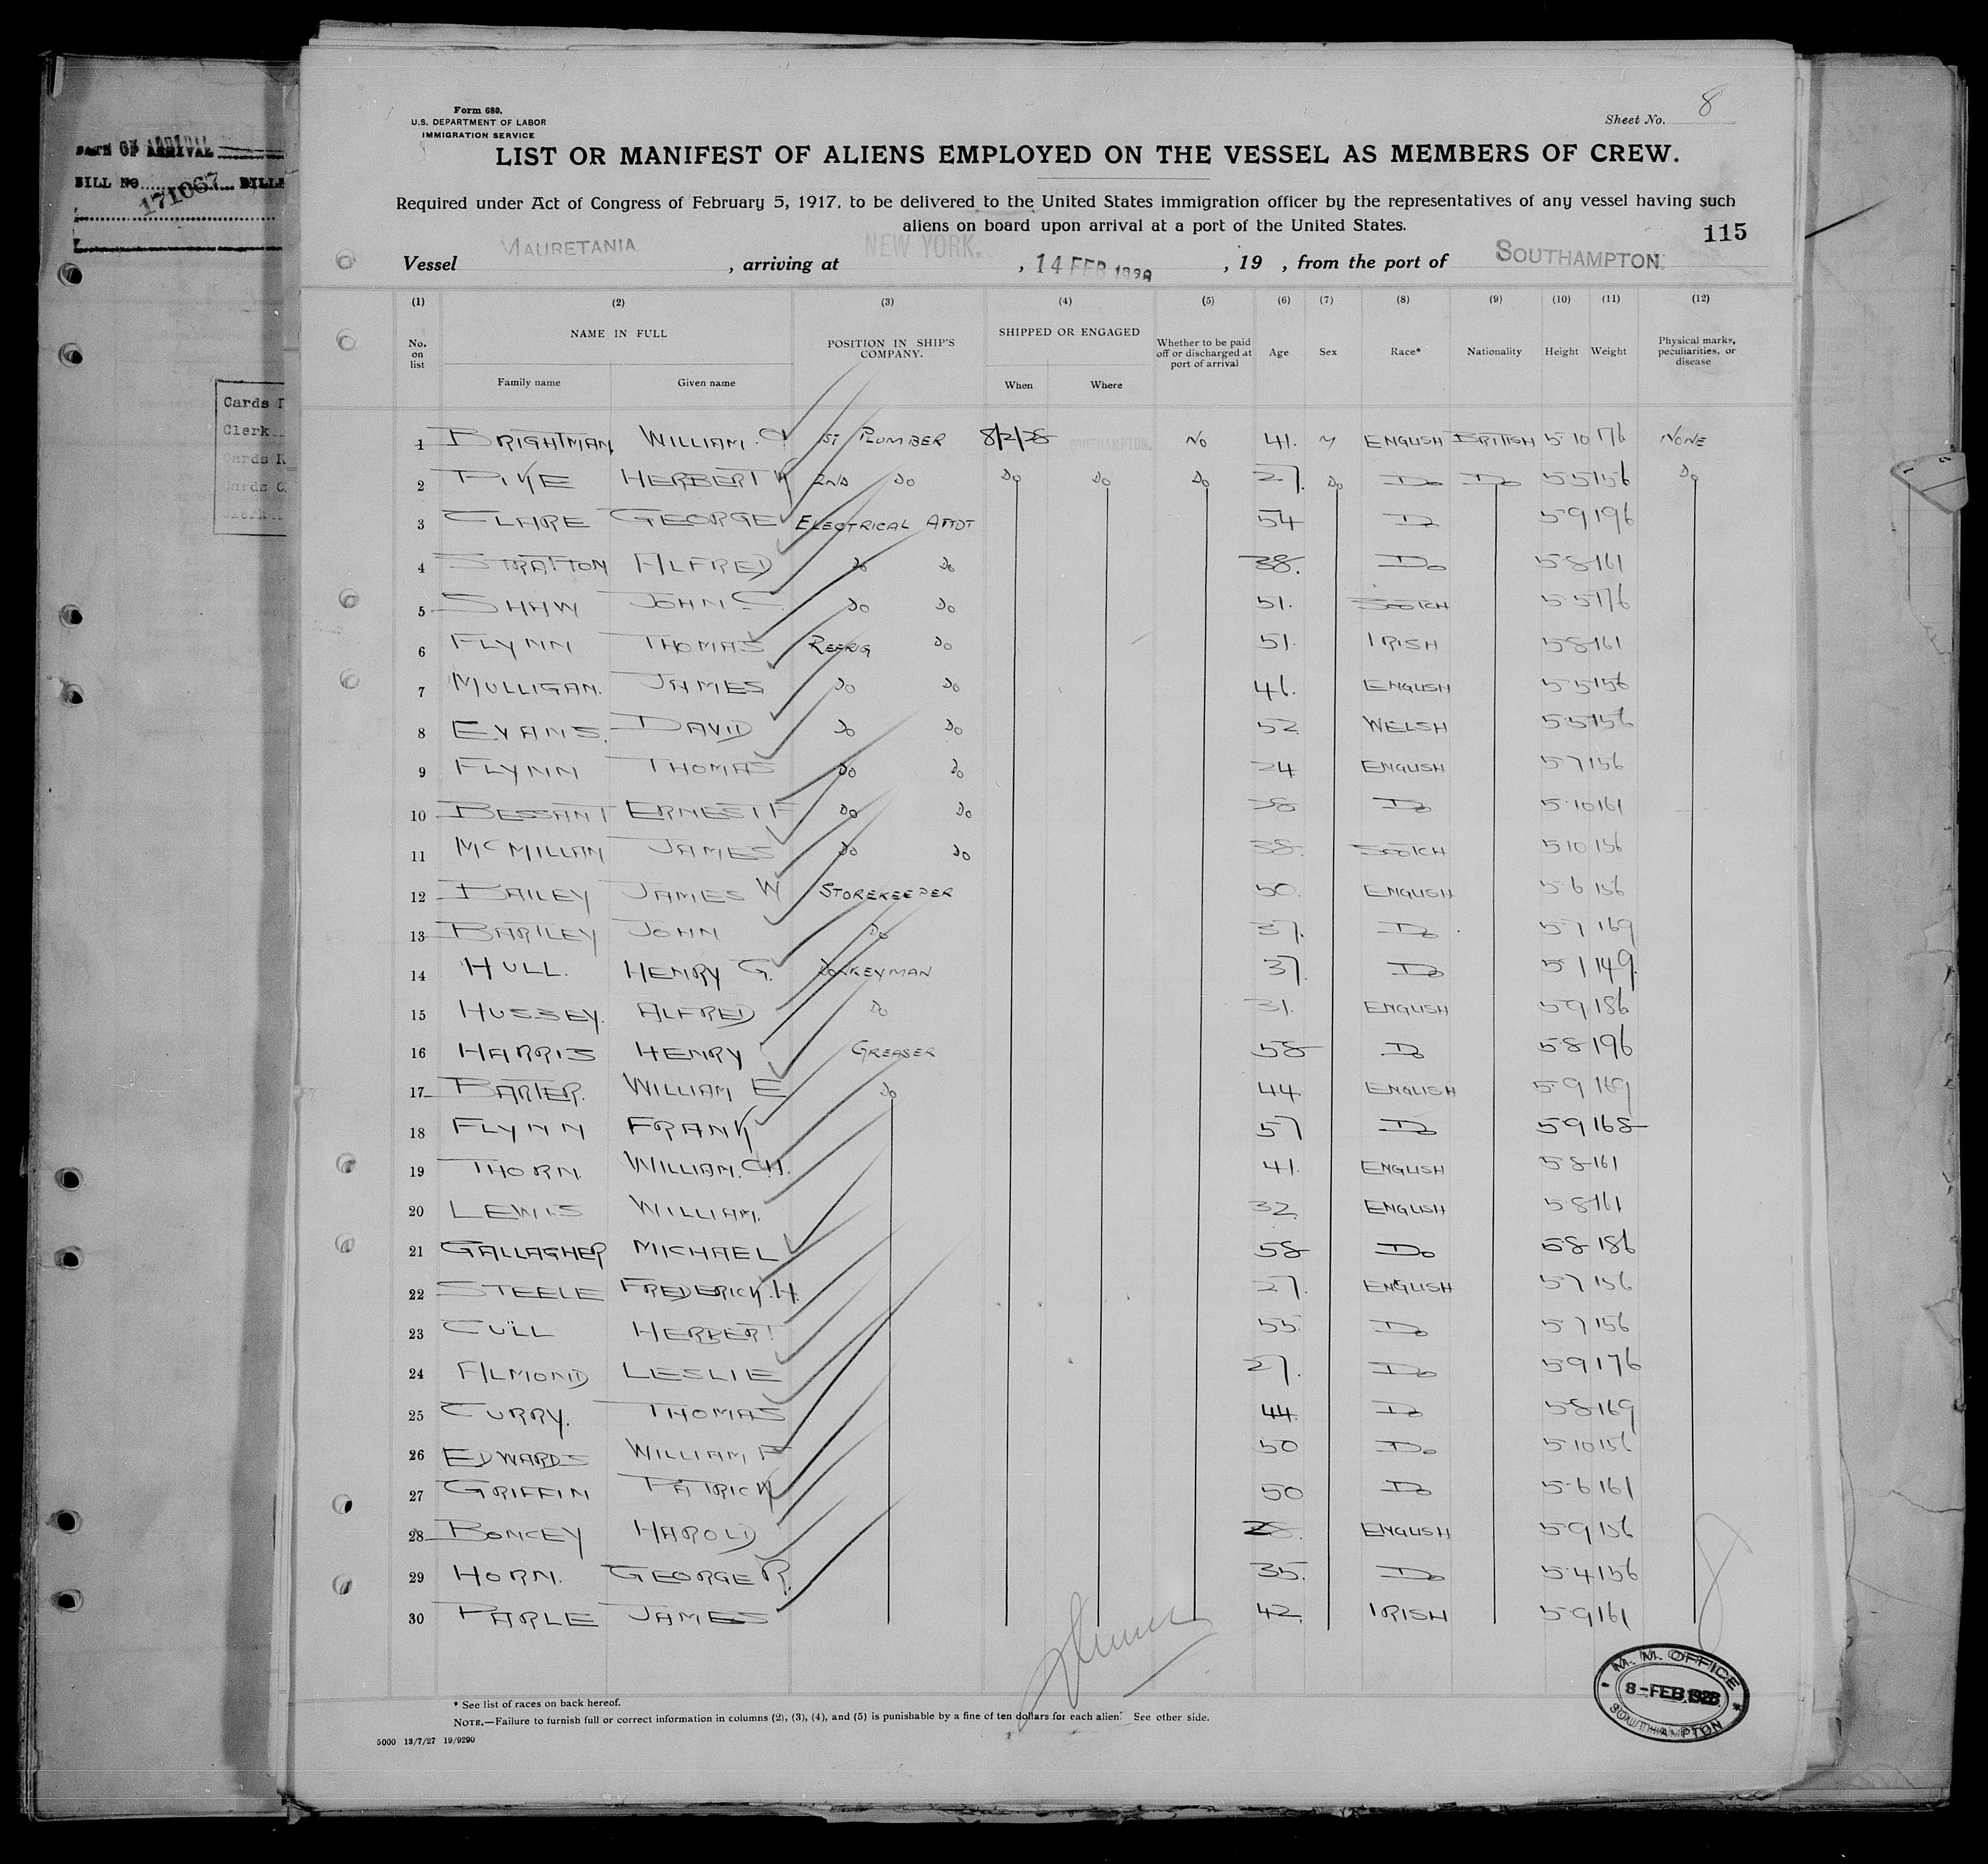 DATE OF ARRIVAL
BILL NO. 171067 BILL
Cards
Clerk
Cards
Cards
Clerk
Form 689.
U.S. DEPARTMENT OF LABOR
IMMIGRATION SERVICE
Sheet No. 8
LIST OR MANIFEST OF ALIENS EMPLOYED ON THE VESSEL AS MEMBERS OF CREW.
Required under Act of Congress of February 5, 1917, to be delivered to the United States immigration officer by the representatives of any vessel having such
aliens on board upon arrival at a port of the United States.
115
Vessel MAURETANIA, arriving at NEW YORK., 14 FEB 1928, 19 , from the port of SOUTHAMPTON.
(1) (2) (3) (4) (5) (6) (7) (8) (9) (10) (11) (12)
No. on list NAME IN FULL POSITION IN SHIP'S COMPANY. SHIPPED OR ENGAGED Whether to be paid off or discharged at port of arrival Age Sex Race* Nationality Height Weight Physical marks, peculiarities, or disease
Family name Given name When Where
1 BRIGHTMAN WILLIAM. C. 1ST PLUMBER 8/2/28 SOUTHAMPTON. NO 41. M ENGLISH BRITISH 5-10 176 NONE
2 PIKE HERBERT W 2ND DO DO DO DO 27. DO DO DO 5-5 156 DO
3 CLARE GEORGE ELECTRICAL ATTDT 54 DO 5-9 196
4 STRATTON ALFRED DO DO 38. DO 5-8 161
5 SHAW JOHN S. DO DO 51. SCOTCH 5-5 176
6 FLYNN THOMAS REFRIG DO 51. IRISH 5-8 161
7 MULLIGAN. JAMES DO DO 46. ENGLISH 5-5 156
8 EVANS. DAVID DO DO 52 WELSH 5-5 156
9 FLYNN THOMAS DO DO 24 ENGLISH 5-7 156
10 BESSANT ERNEST F DO DO 38 DO 5-10 161
11 MCMILLAN JAMES DO DO 38. SCOTCH 5-10 156
12 BAILEY JAMES W STOREKEEPER 50. ENGLISH 5-6 156
13 BARTLEY JOHN DO 37. DO 5-7 169
14 HULL. HENRY G. DONKEYMAN 37. DO 5-1 149.
15 HUSSEY. ALFRED DO 31. ENGLISH 5-9 186
16 HARRIS HENRY GREASER 58 DO 5-8 196
17 BARTER. WILLIAM E DO 44. ENGLISH 5-9 169
18 FLYNN FRANK 57 DO 5-9 168
19 THORN. WILLIAM. C.H. 41. ENGLISH 5-8 161
20 LEWIS WILLIAM. 32 ENGLISH 5-8 161
21 GALLAGHER MICHAEL 58 DO 5-8 186
22 STEELE FREDERICK. H. 27. ENGLISH 5-7 156
23 CULL HERBERT 55 DO 5-7 156
24 ALMOND LESLIE 27. DO 5-9 176
25 CURRY. THOMAS 44. DO 5-8 169
26 EDWARDS WILLIAM F 50 DO 5-10 156
27 GRIFFIN PATRICK 50 DO 5-6 161
28 BONCEY HAROLD 28. ENGLISH 5-9 156
29 HORN. GEORGE R. 35. DO 5-4 156
30 PARLE JAMES 42. IRISH 5-9 161
* See list of races on back hereof.
NOTE.—Failure to furnish full or correct information in columns (2), (3), (4), and (5) is punishable by a fine of ten dollars for each alien. See other side.
5000 13/7/27 19/9290
M. M. OFFICE
8-FEB 1928
SOUTHAMPTON